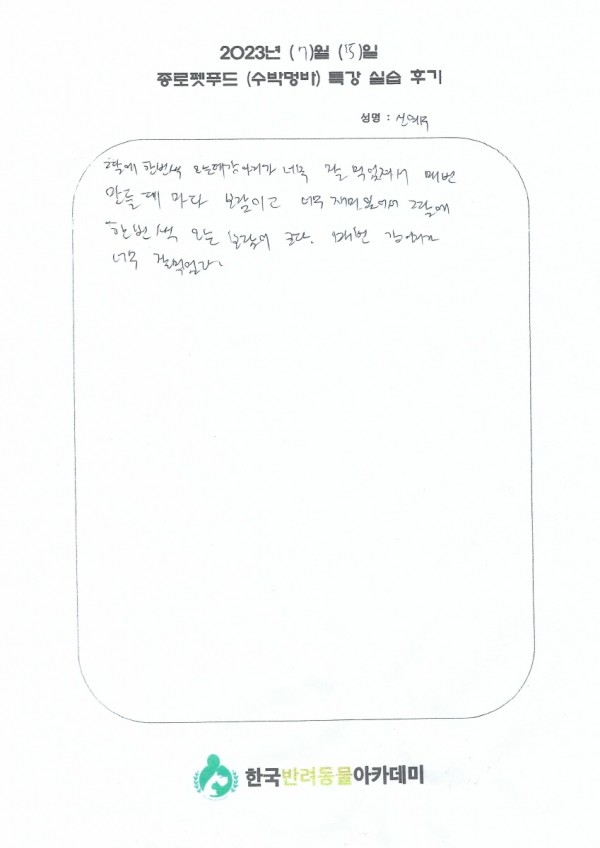 2023년 (7)월 (15)일
종로펫푸드 (수박멍바) 특강 실습 후기
성명 :
한번씩 오는데 강아지가 너무 잘 먹었줘서 매번
만들 때 마다 보람이고 너무 재미있어서 그달에
한번씩 오는 보람이 크다. 매번
너무 잘먹었다.
한국반려동물아카데미